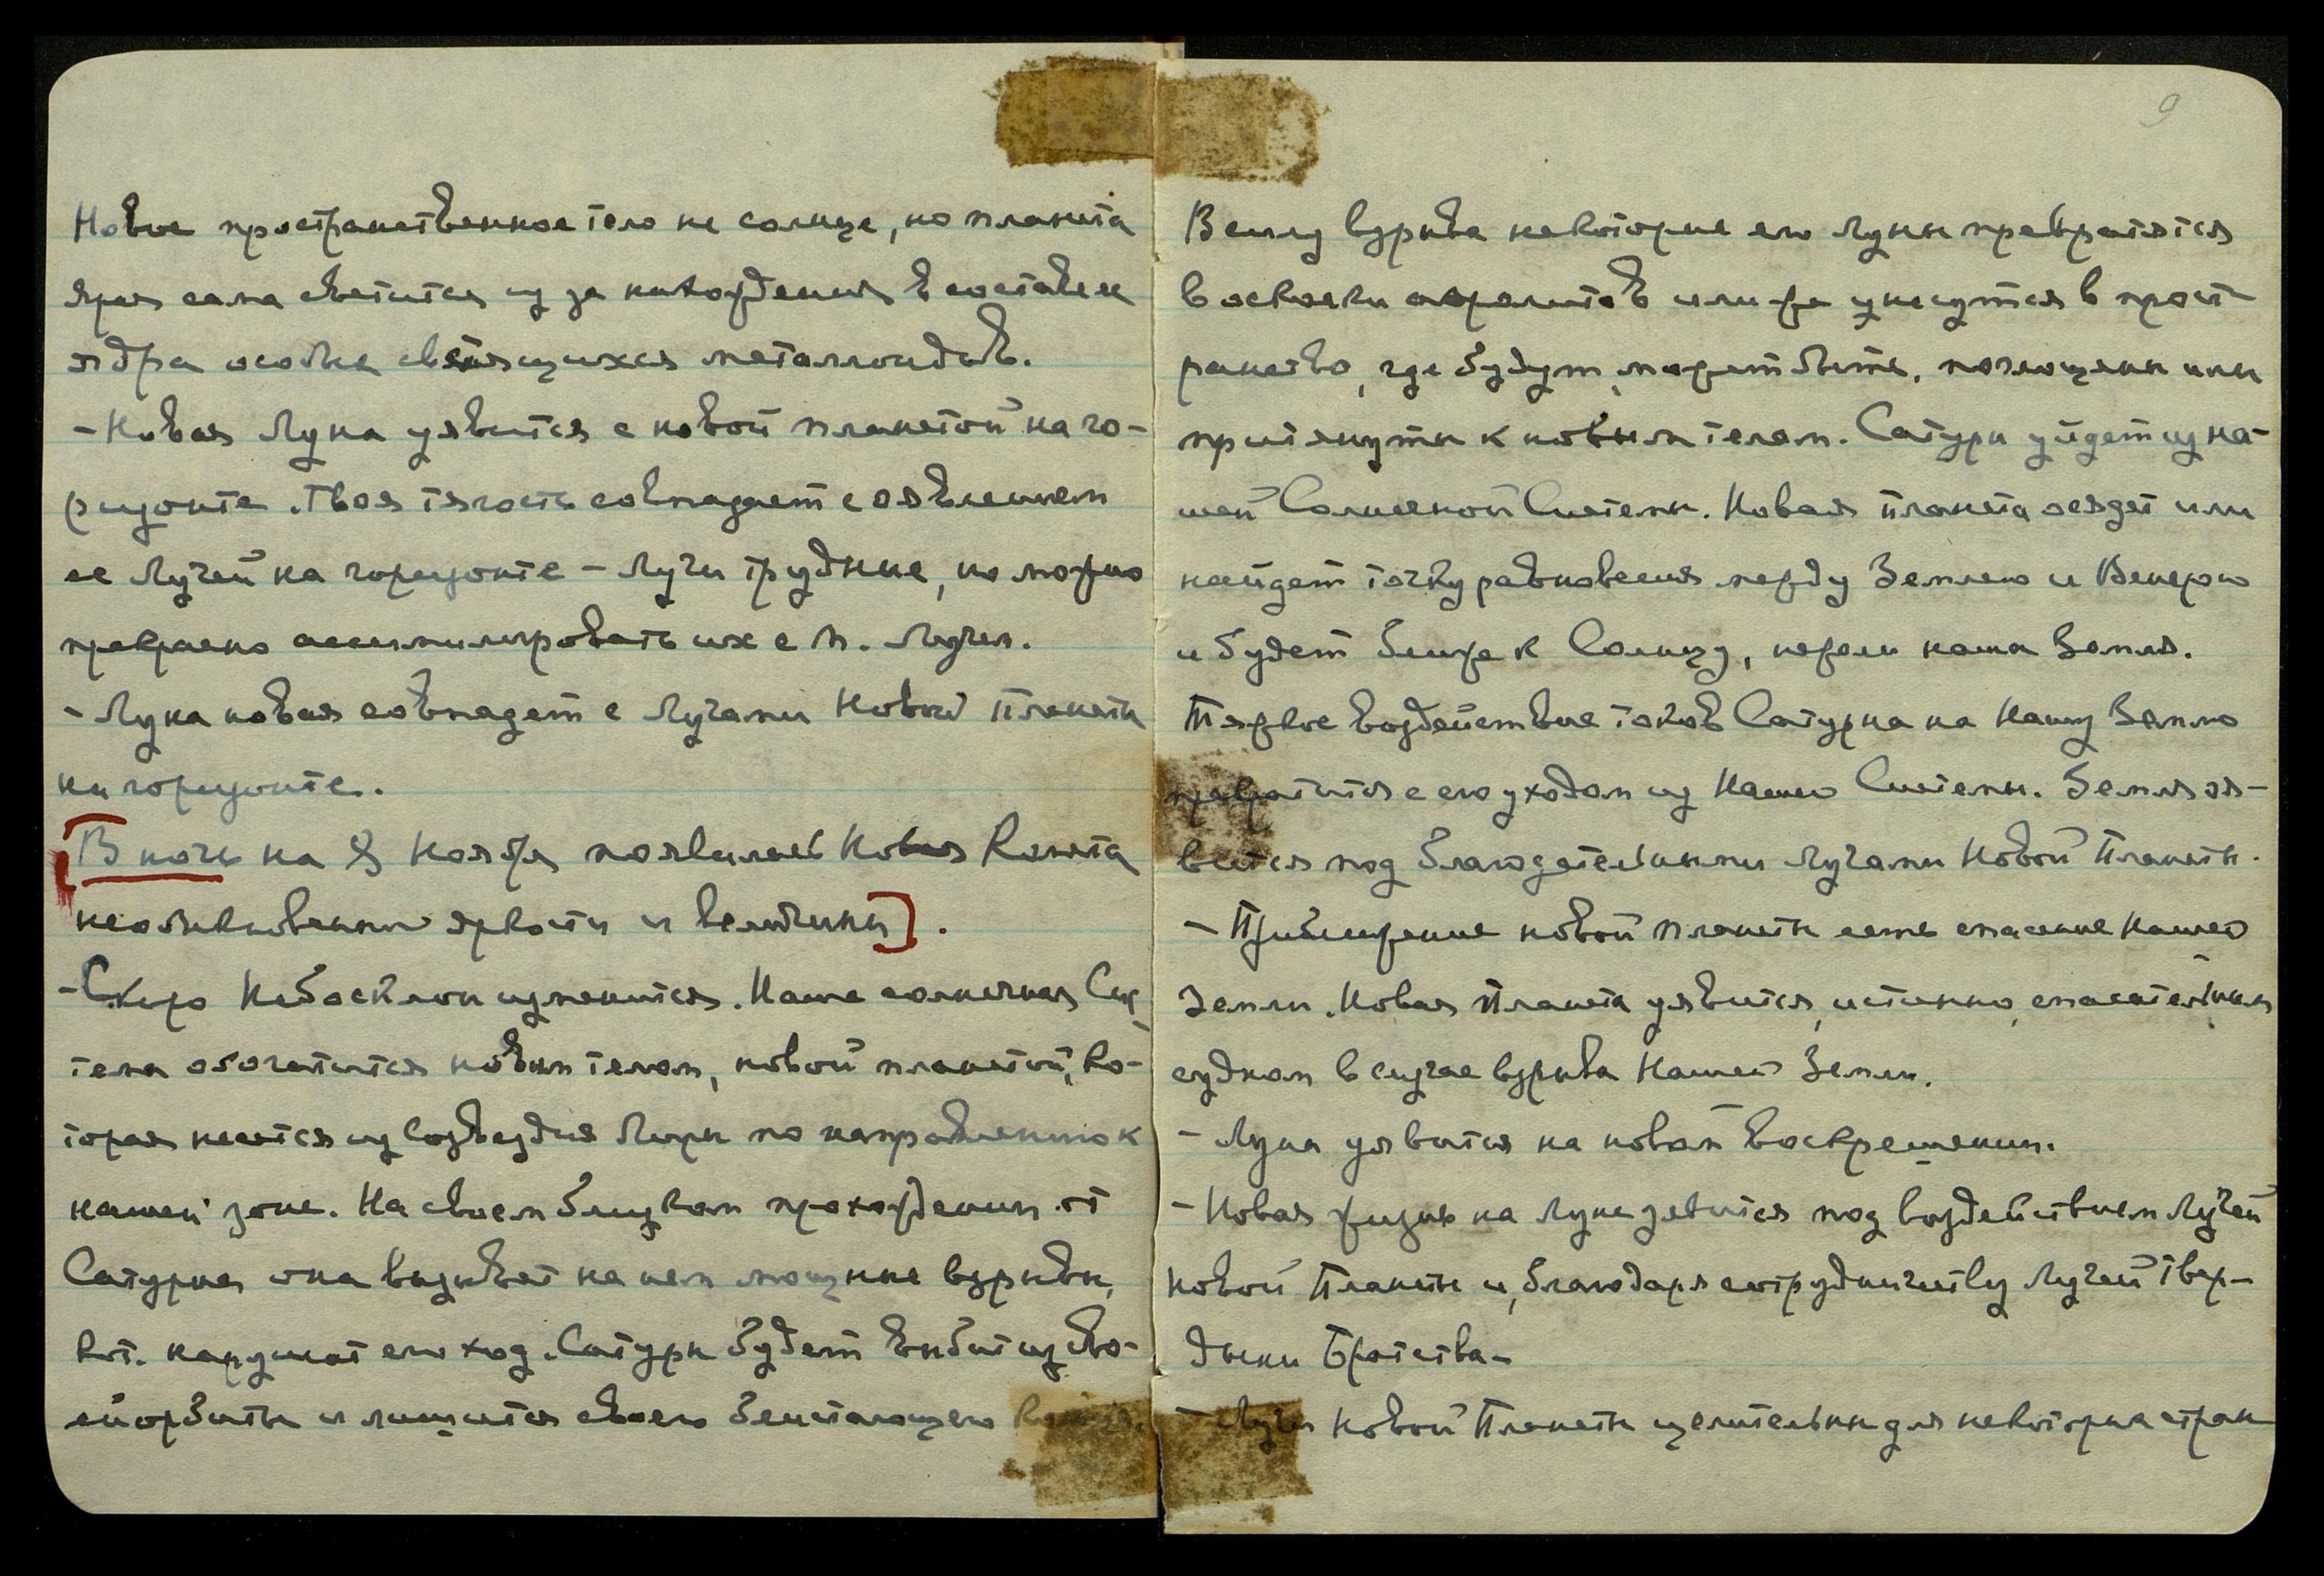 Новое пространственное тело не солнце, но планета
Ярая сама светится из за нахождения в составе ее
ядра особых светящихся металлоидов.
- Новая Луна уявится с новой планетой на го-
ризонте. Твоя тягость совпадает с оявлением
ее Лучей на горизонте - Лучи трудные, но можно
прекрасно ассимилировать их с М. Лучем.
- Луна новая совпадет с Лучами Новой Планеты
на горизонте.
[В ночь на 8 Ноября появилась Новая Комета
необыкновенной яркости и величины].
- Скоро Небосклон изменится. Наша солнечная Сис-
тема обогатится новым телом, новой планетой, ко-
торая несется из Созвездия Лиры по направлению к
нашей зоне. На своем близком прохождении от
Сатурна она вызовет на нем мощные взрывы,
кот. нарушат его ход. Сатурн будет выбит из сво-
ей орбиты и лишится своего блистающего Кольца.
9
В силу взрыва некоторые его Луны превратятся
в осколки аэролитов или же унесутся в прост-
ранство, где будут, может быть, поглощены или
притянуты к новым телам. Сатурн уйдет из на-
шей Солнечной Системы. Новая Планета осядет или
найдет точку равновесия между Землею и Венерою
и будет ближе к Солнцу, нежели наша Земля.
Тяжкое воздействие токов Сатурна на Нашу Землю
прекратится с его уходом из Нашей Системы. Земля оя-
вится под благодательными Лучами Новой Планеты.
- Приближение новой планеты есть спасение Нашей
Земли. Новая Планета уявится, истинно, спасательным
судном в случае взрыва Нашей Земли.
- Луна уявится на новом воскрешении.
- Новая жизнь на Луне уявится под воздействием Лучей
Новой Планеты и, благодаря сотрудничеству Лучей Твер-
дыни Братства-
- Лучи Новой Планеты целительны для некоторых стран